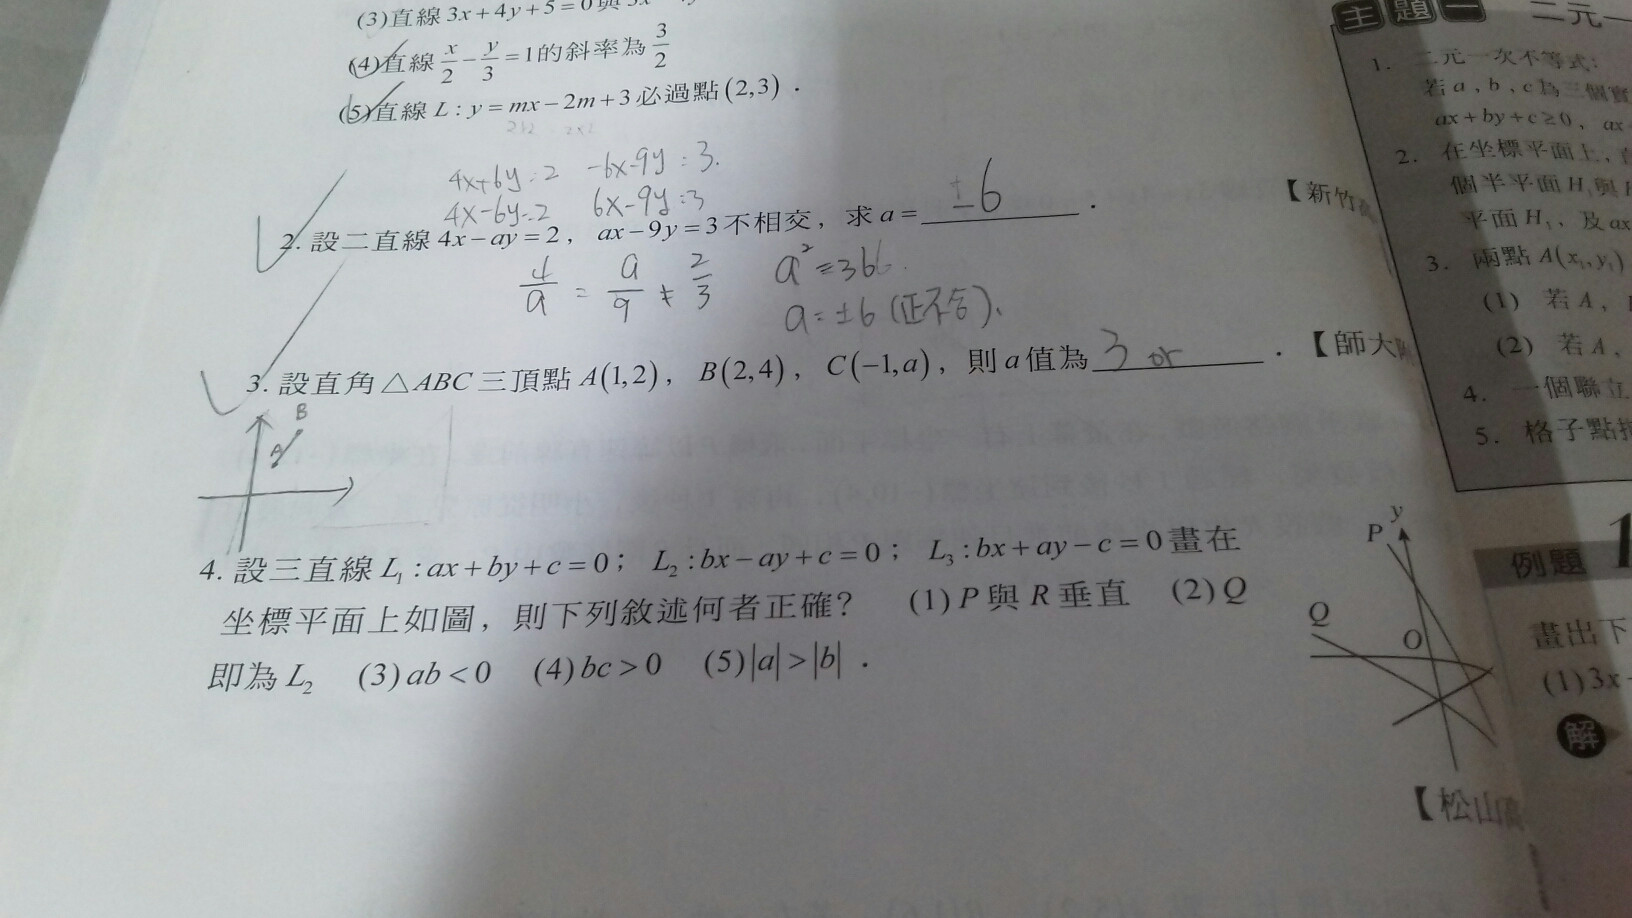 (3)直線3x+4y+5=0與
(4)直線x/2-y/3=1的斜率為3/2
(5)直線L:y=mx-2m+3必過點(2,3).
4x+6y=2 -6x-9y=3.
4x-6y=2 6x-9y=3
2.設二直線4x-ay=2,ax-9y=3不相交,求a=±6.
【新竹
4/a=a/9≠2/3 a²=36
a=±6(正不合).
3.設直角△ABC三頂點A(1,2),B(2,4),C(-1,a),則a值為3 or.【師大
B
A
4.設三直線L₁:ax+by+c=0;L₂:bx-ay+c=0;L₃:bx+ay-c=0畫在
坐標平面上如圖,則下列敘述何者正確? (1)P與R垂直 (2)Q
即為L₂ (3)ab<0 (4)bc>0 (5)|a|>|b|.
P y
Q
O
【松山
主題一 二元一
1. 二元一次不等式:
若a、b、c為三個實
ax+by+c≥0、ax
2. 在坐標平面上,
個半平面H₁與
平面H₁、及ax
3. 兩點A(x₁,y₁)
(1) 若A、
(2) 若A、
4. 一個聯立
5. 格子點
例題 1
畫出下
(1)3x
解